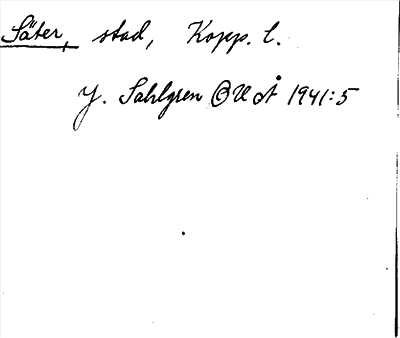 Säter, stad, Kopp. l.
J. Sahlgren OUÅ 1941:5